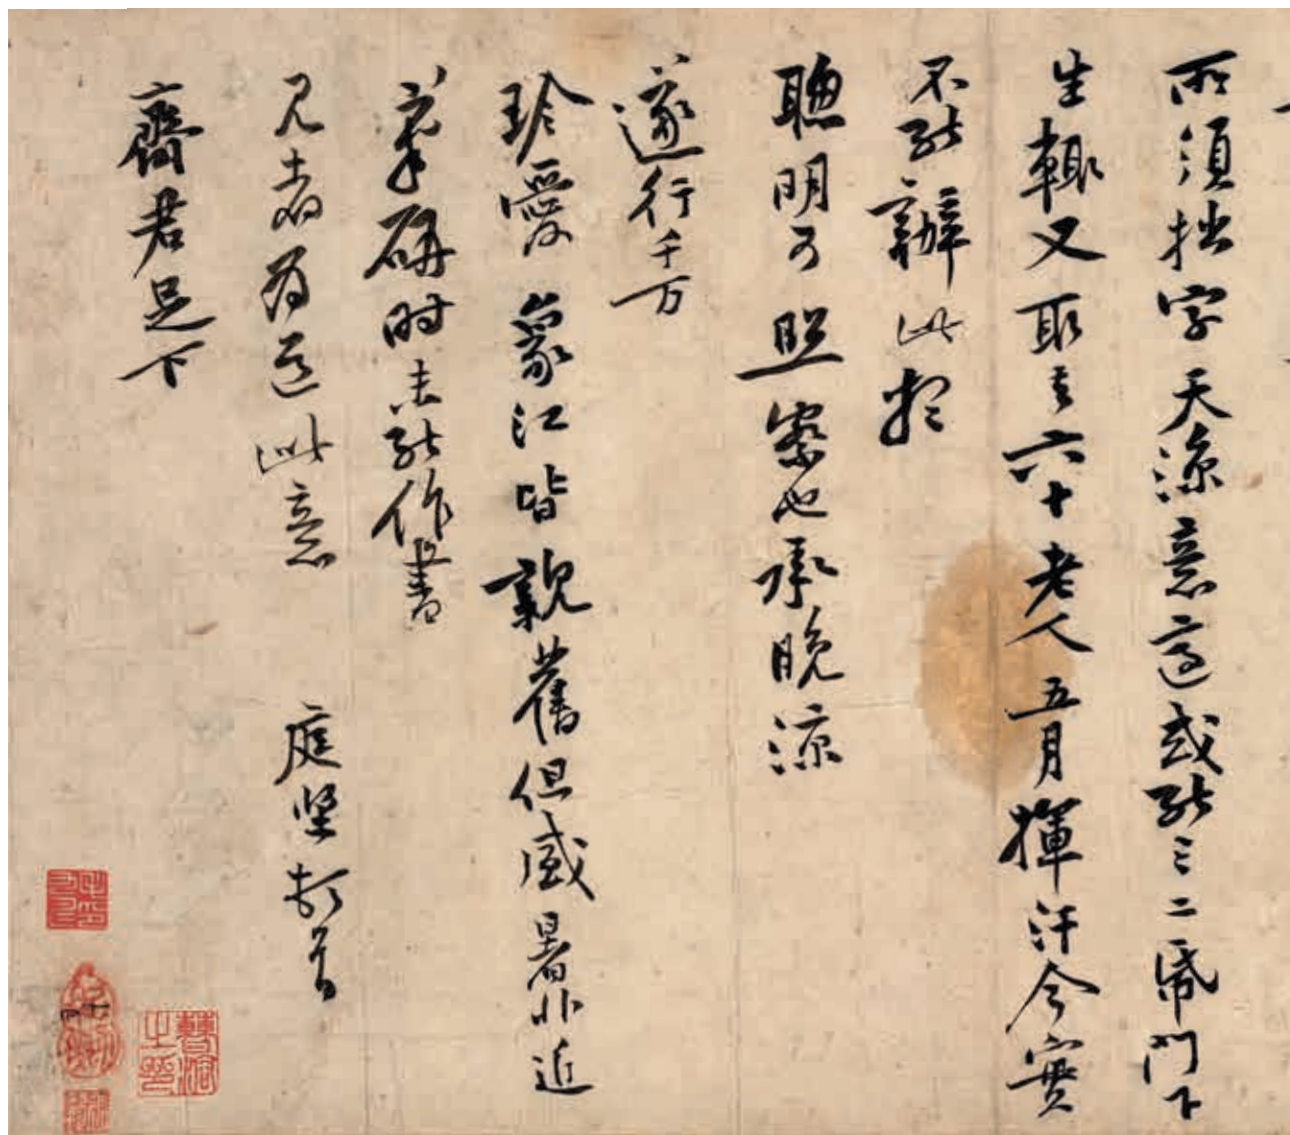 所須拙字天涼意適或能三二紙門下
生輒又取去六十老人五月揮汗今實
不能辦此想
聰明可照察也承晚涼
遂行千萬
珍愛象江皆親舊但盛暑非近
筆研時未能作書
見者爲道此意
庭堅頓首
齋君足下